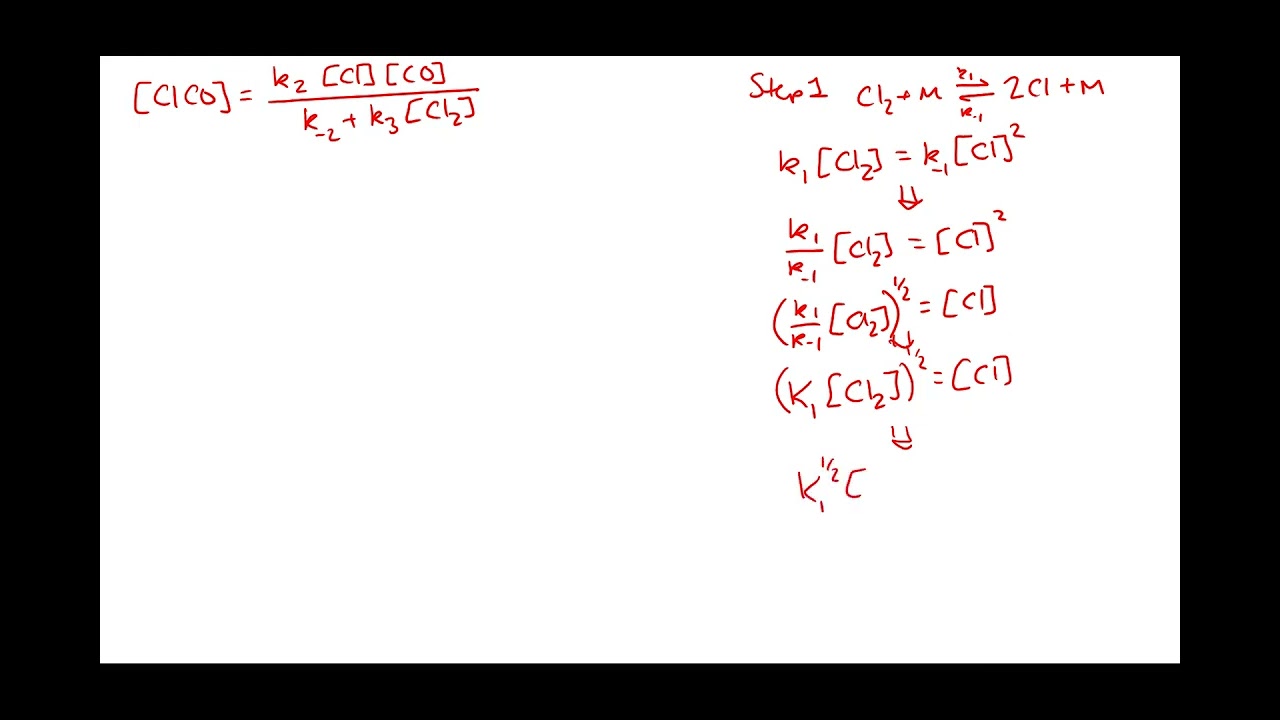 [ClCO] = k₂ [Cl] [CO] / k₋₂ + k₃ [Cl₂]
Step 1 Cl₂ + M ⇌ 2Cl + M
k₁
k₋₁
k₁ [Cl₂] = k₋₁ [Cl]²
⇓
k₁/k₋₁ [Cl₂] = [Cl]²
(k₁/k₋₁ [Cl₂])^1/2 = [Cl]
⇓
(K₁ [Cl₂])^1/2 = [Cl]
⇓
K₁^1/2 [